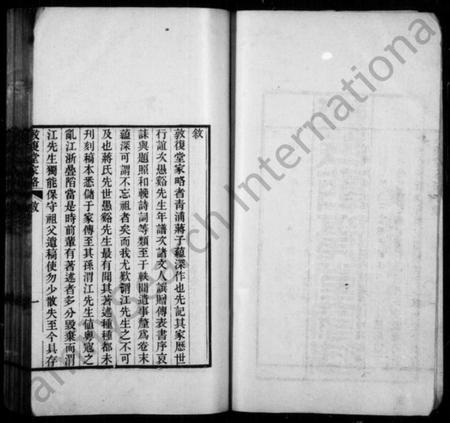 敘
敦復堂家略者青浦蔣子蘊深作也先記其家歷世
行誼次愚谿先生年譜次諸文人讌贈傳表書序哀
誄與題照和輓詩詞等類至于軼聞遺事釐爲卷末
蘊深可謂不忘祖者矣而我尤歎謂江先生之不可
及也蔣氏先世愚谿先生最有聞其著述種種都未
刊刻稿本悉儲于家傳至其孫渭江先生值粵寇之
亂江浙疊陷當是時前輩有著述者多分毀棄而渭
江先生獨能保守祖父遺稿使勿少散失至今具存
敦復堂家略 敘 一
International